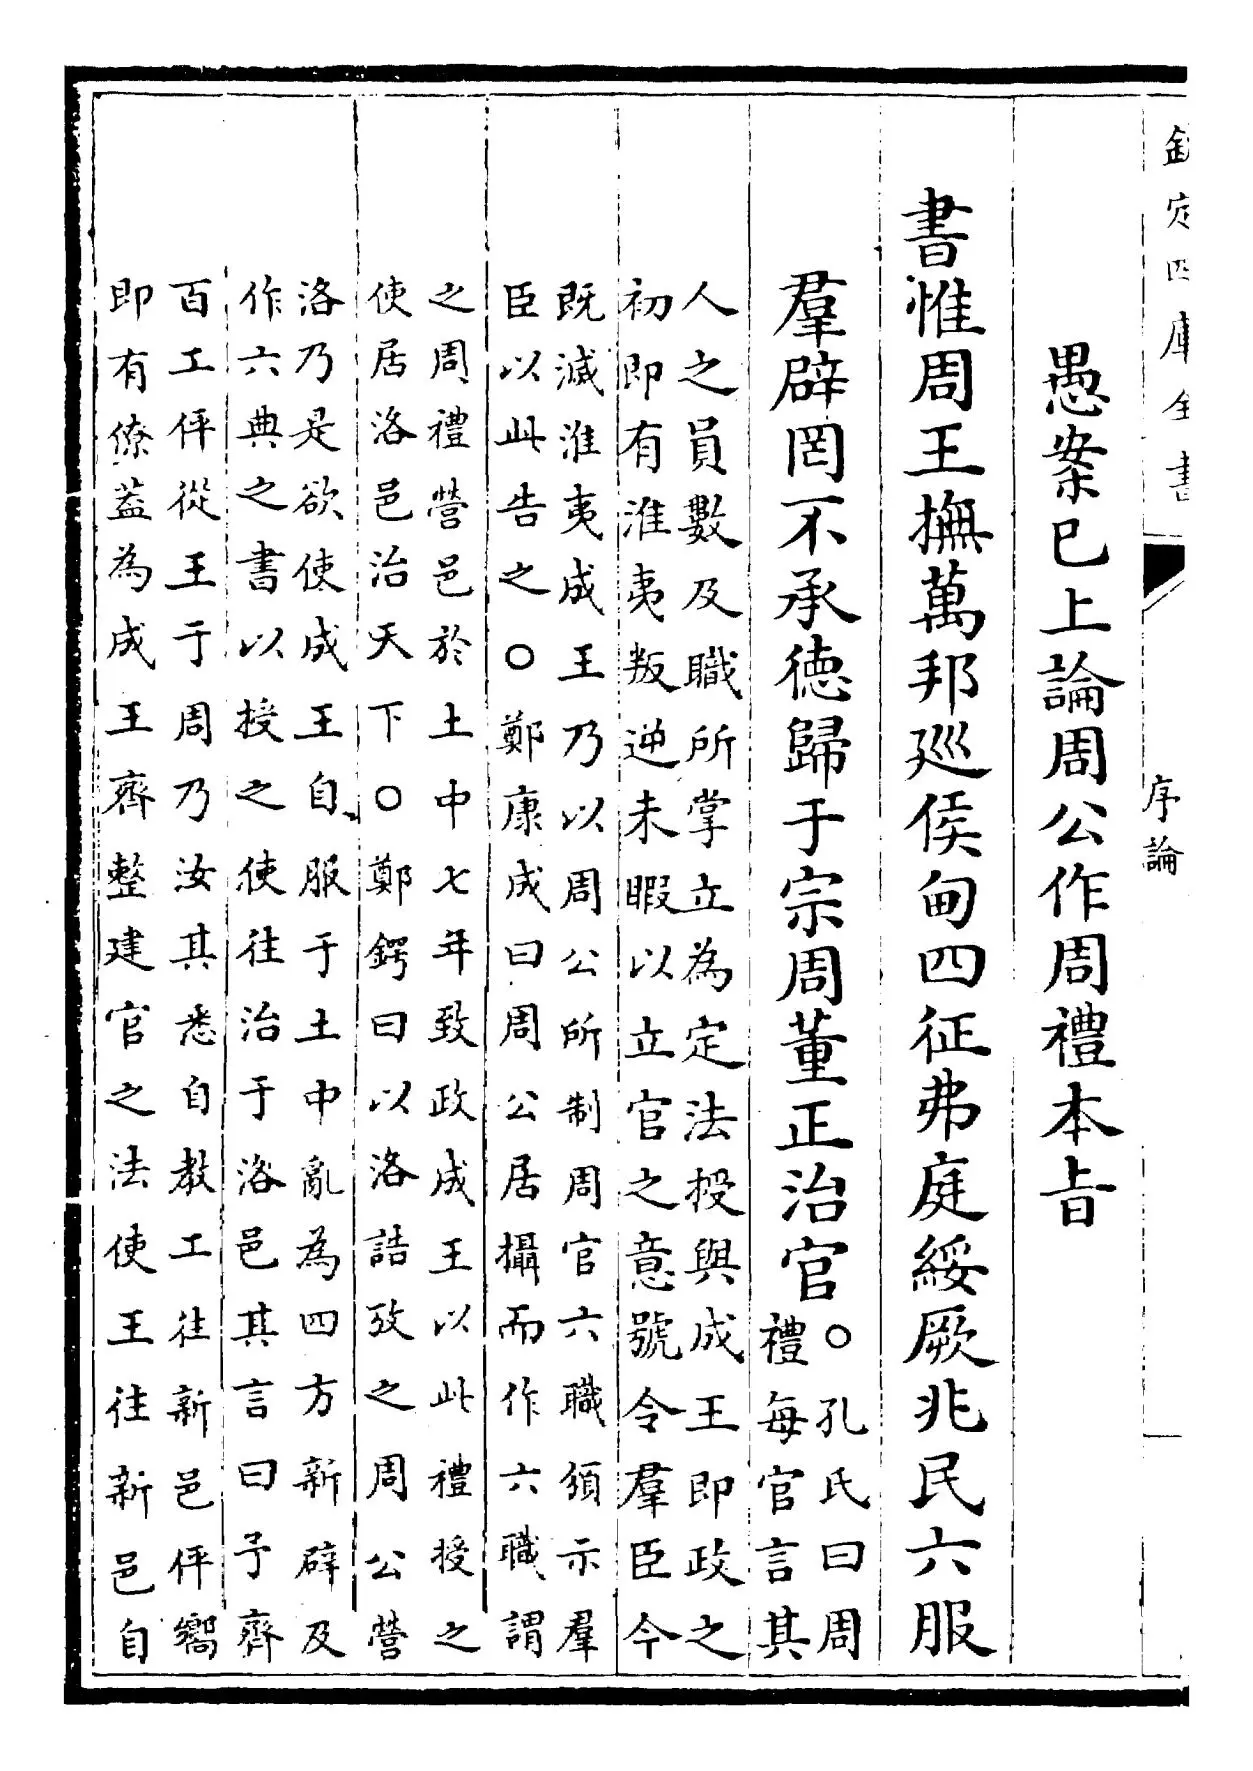 欽定四庫全書
序論
愚案已上論周公作周禮本旨
書惟周王撫萬邦廵侯甸四征弗庭綏厥兆民六服
羣辟罔不承徳歸于宗周董正治官○孔氏曰周
禮每官言其
人之員數及職所掌立為定法授與成王即政之
初即有淮夷叛逆未暇以立官之意號令羣臣今
既滅淮夷成王乃以周公所制周官六職須示羣
臣以此告之○鄭康成曰周公居攝而作六職謂
之周禮營邑於土中七年致政成王以此禮授之
使居洛邑治天下○鄭鍔曰以洛誥攷之周公營
洛乃是欲使成王自服于土中亂為四方新辟及
作六典之書以授之使往治于洛邑其言曰予齊
百工伻從王于周乃汝其悉自教工往新邑伻嚮
即有僚葢為成王齊整建官之法使王往新邑自